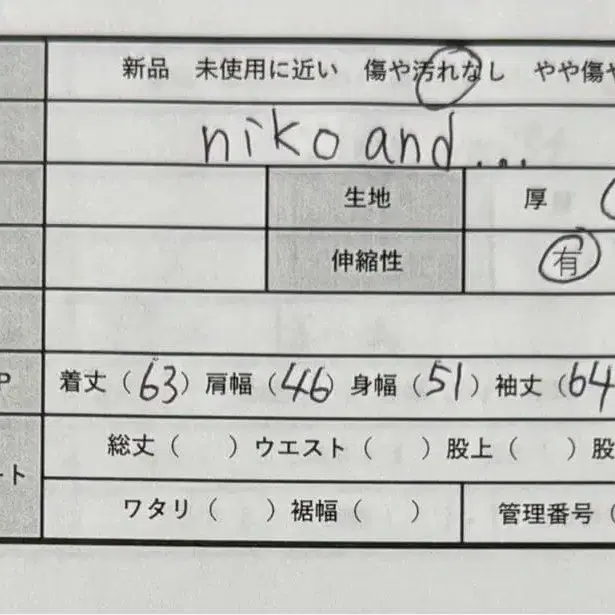 新品 未使用に近い 傷や汚れなし やや傷や
niko and...
生地 厚
伸縮性 有
P 着丈（63）肩幅（46）身幅（51）袖丈（64
総丈（ ）ウエスト（ ）股上（ ）股
ート
ワタリ（ ）裾幅（ ） 管理番号（